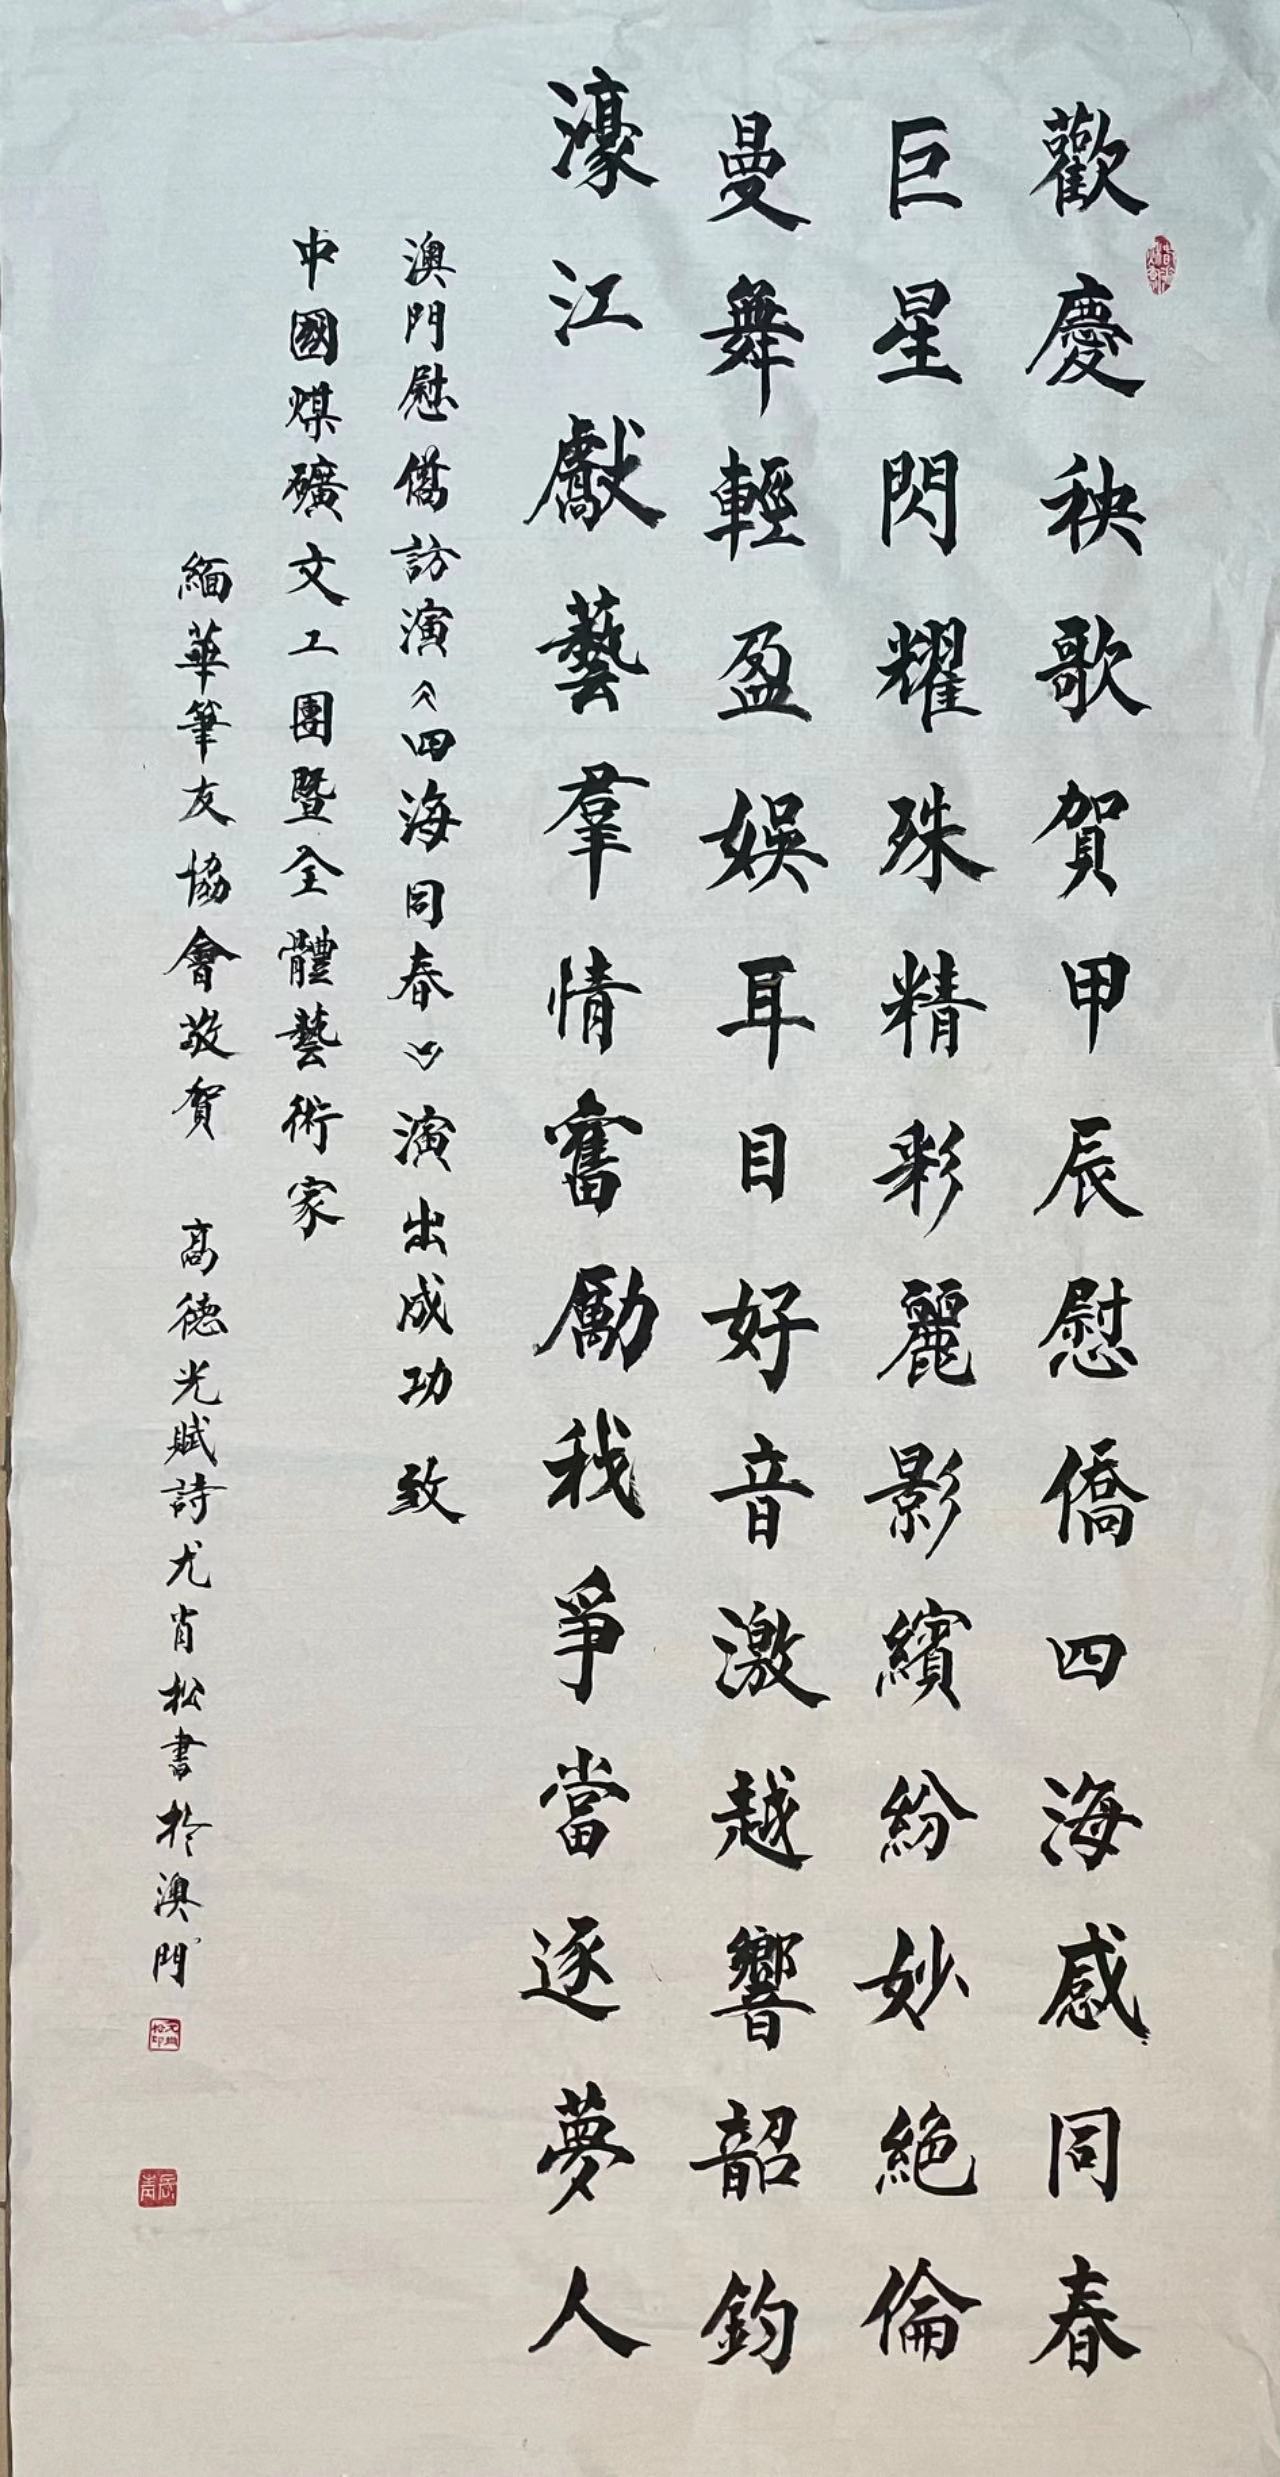 歡慶秧歌賀甲辰慰僑四海感同春
巨星閃耀殊精彩麗影繽紛妙絶倫
曼舞輕盈娛耳目好音激越響韶鈞
濠江獻藝羣情奮勵我爭當逐夢人
澳門慰僑訪演《四海同春》演出成功 致
中國煤礦文工團暨全體藝術家
緬華筆友協會敬賀 高德光賦詩尤肖松書於澳門